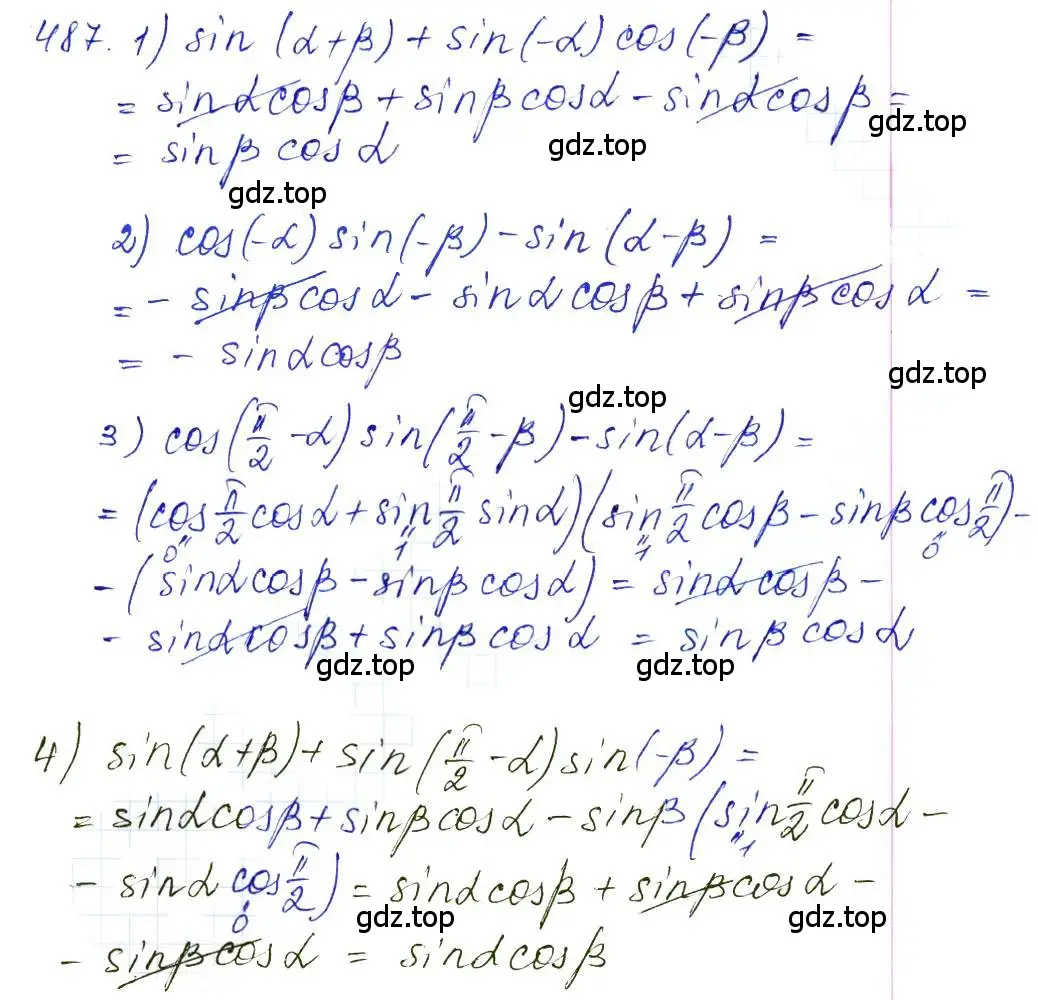 487. 1) sin (α+β) + sin(-α) cos(-β) =
= sinαcosβ + sinβ cosα - sinαcosβ =
gdz.top
= sinβ cosα
gdz.top
gdz.top
2) cos(-α) sin(-β) - sin (α-β) =
= - sinβcosα - sinαcosβ + sinβcosα =
= - sinαcosβ
gdz.top
gdz.top
3) cos(π/2 - α) sin(π/2 - β) - sin(α-β) =
= (cos π/2 cosα + sin π/2 sinα)(sin π/2 cosβ - sinβ cos π/2) -
0 1 1 0
- (sinαcosβ - sinβ cosα) = sinαcosβ -
- sinαcosβ + sinβ cosα = sinβ cosα
gdz.top
gdz.top
4) sin(α+β) + sin (π/2 - α) sin(-β) =
= sinαcosβ + sinβcosα - sinβ (sin π/2 cosα -
1
- sinα cos π/2) = sinαcosβ + sinβcosα -
0
gdz.top
gdz.top
- sinβcosα = sinαcosβ